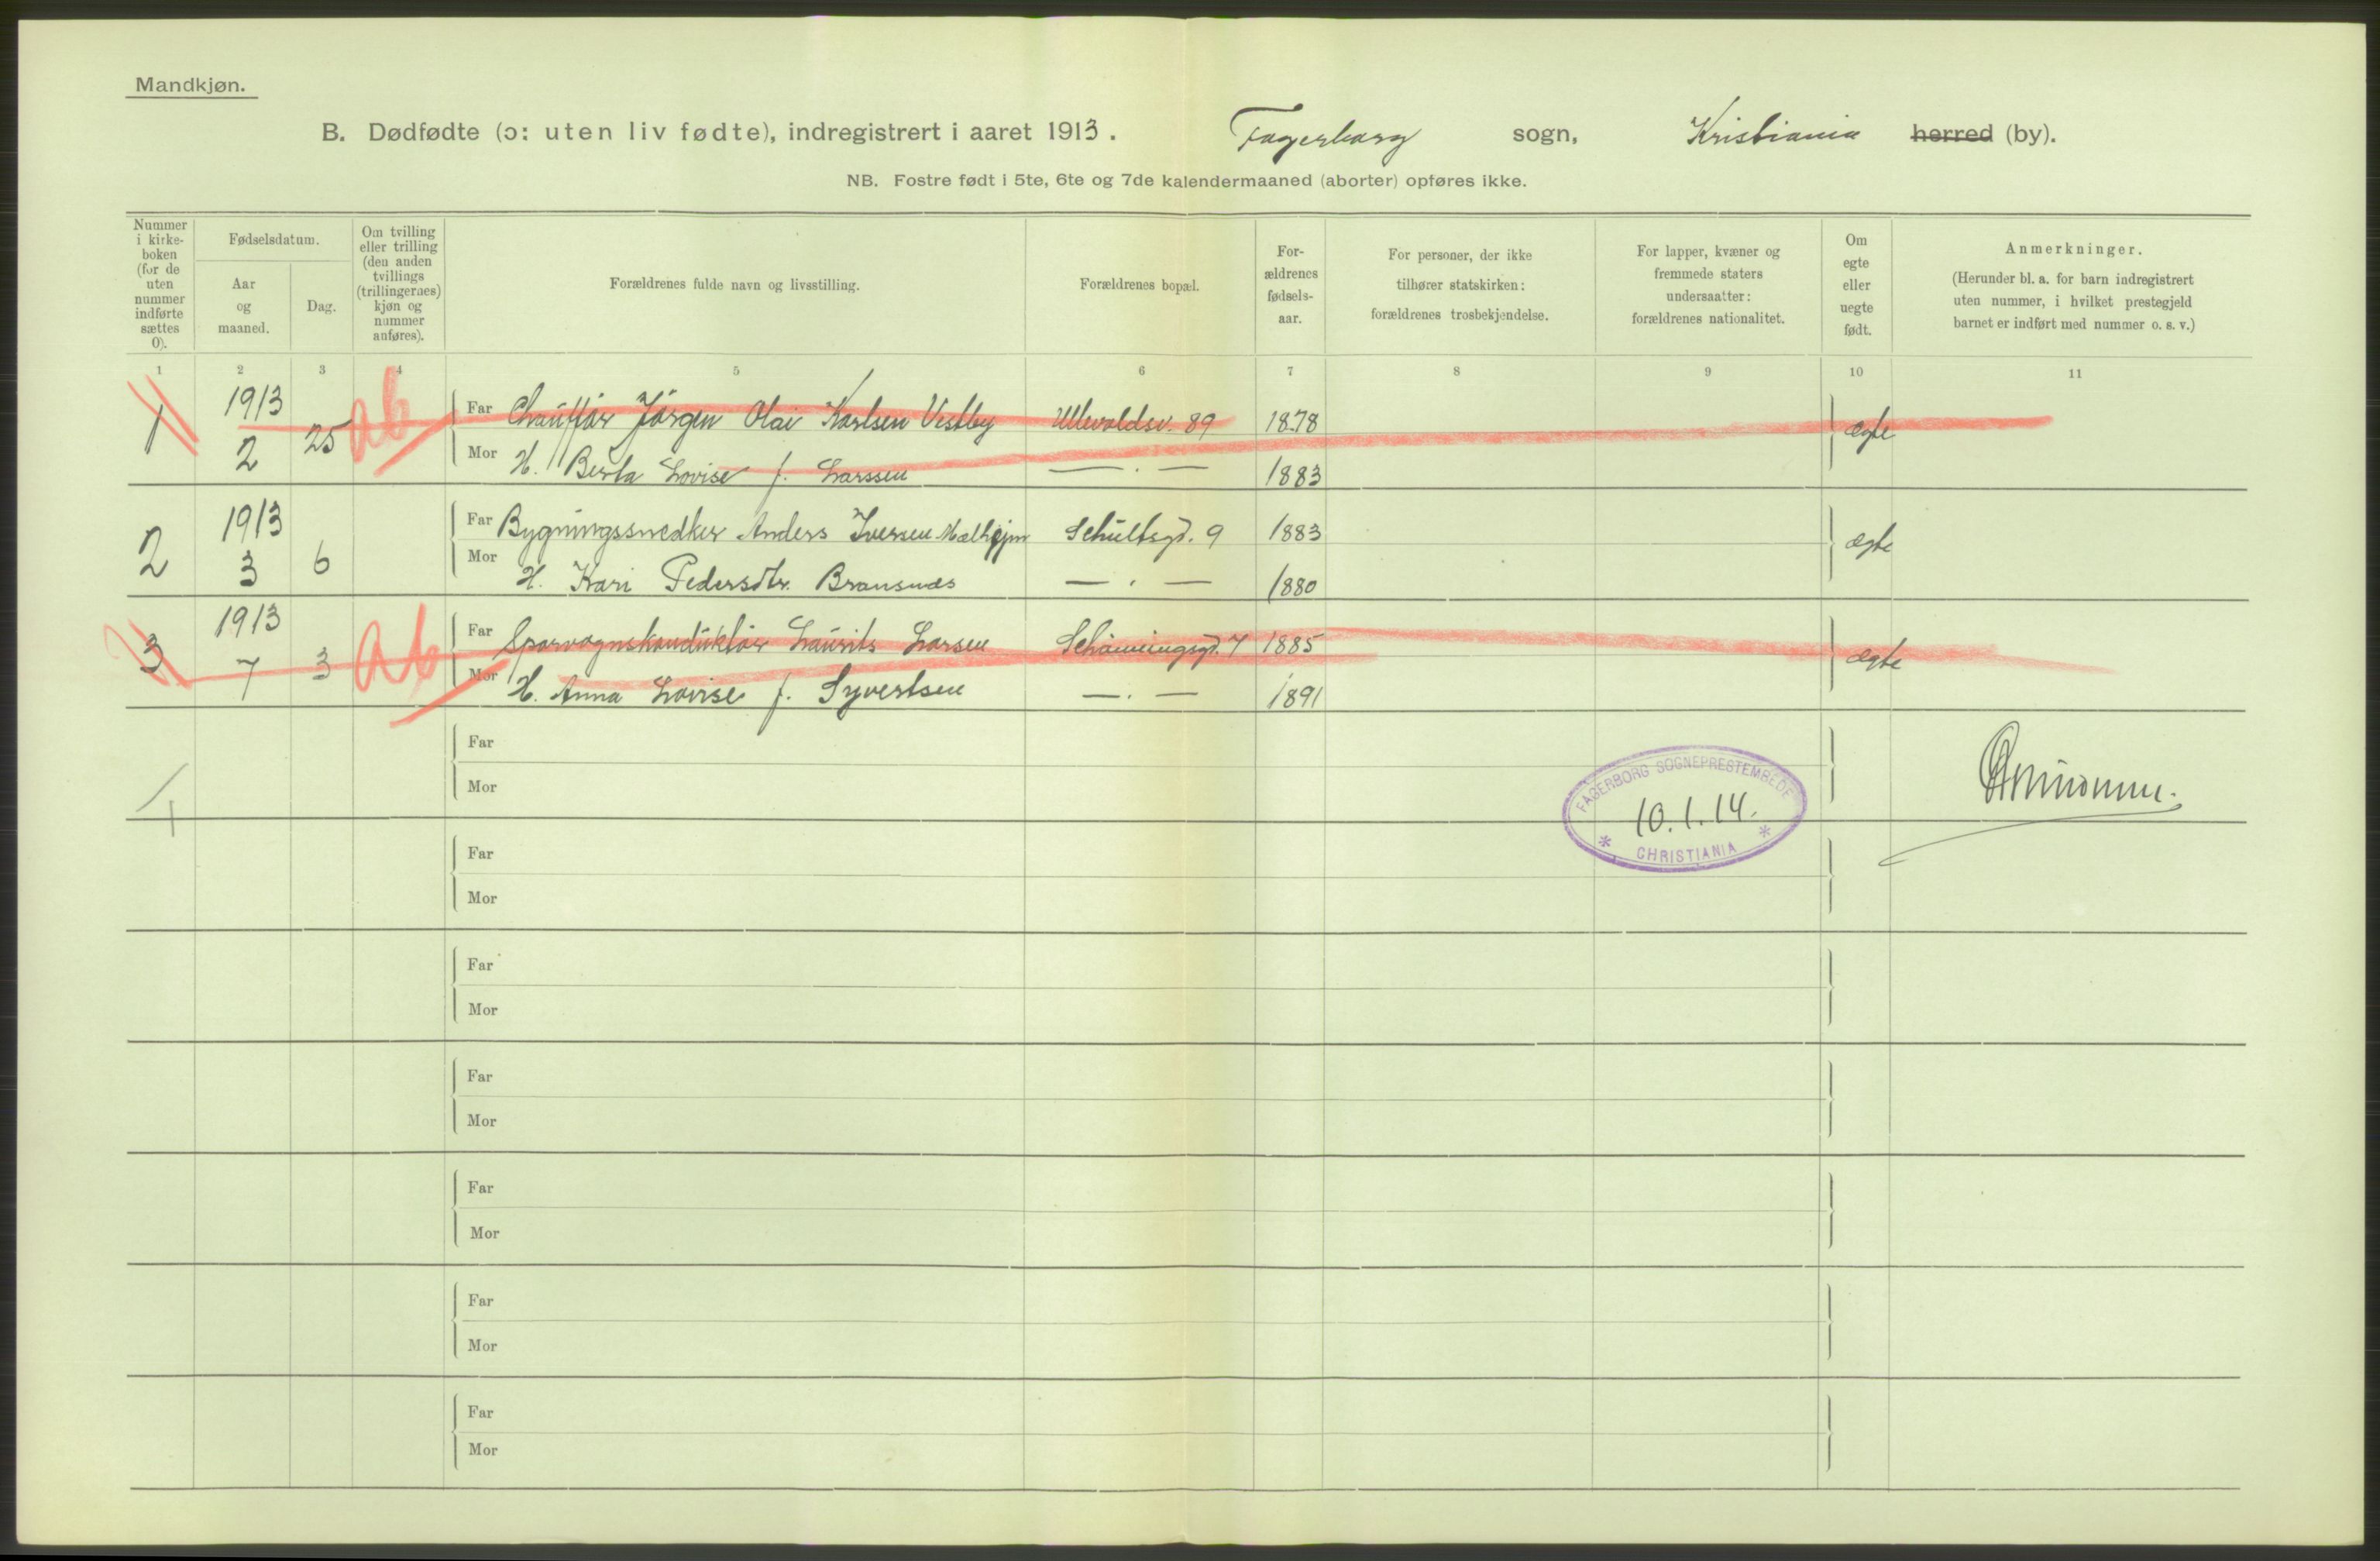 Mandkjøn.
B. Dødfødte (ɔ: uten liv fødte), indregistrert i aaret 1913. Fagerborg sogn, Kristiania herred (by).
NB. Fostre født i 5te, 6te og 7de kalendermaaned (aborter) opføres ikke.
Nummer i kirke- boken (for de uten nummer indførte sættes 0).
Fødselsdatum.
Aar og maaned.
Dag.
Om tvilling eller trilling (den anden tvillings (trillingernes) kjøn og nummer anføres).
Forældrenes fulde navn og livsstilling.
Forældrenes bopæl.
For- ældrenes fødsels- aar.
For personer, der ikke tilhører statskirken: forældrenes trosbekjendelse.
For lapper, kvæner og fremmede staters undersaatter: forældrenes nationalitet.
Om egte eller uegte født.
Anmerkninger.
(Herunder bl. a. for barn indregistrert uten nummer, i hvilket prestegjeld barnet er indført med nummer o. s. v.)
1 2 3 4 5 6 7 8 9 10 11
1 1913 2 25 Ab Far Chauffør Jørgen Olai Karlsen Vestby Ullevoldsv. 89 1878 ægte
Mor H. Berta Lovise f. Larssen — . — 1883
2 1913 3 6 Far Bygningssnedker Anders Iversen Schultsgd. 9 1883 ægte
Mor H. Kari Pedersdtr. Bransnæs — . — 1880
3 1913 7 3 Ab Far Sporvognskonduktør Laurits Larsen Schønningsgd. 7 1885 ægte
Mor H. Anna Lovise f. Syvertsen — . — 1891
4
Far
Mor
FAGERBORG SOGNEPRESTEMBEDE
10.1.14.
* CHRISTIANIA *
Far
Mor
Far
Mor
Far
Mor
Far
Mor
Far
Mor
Far
Mor